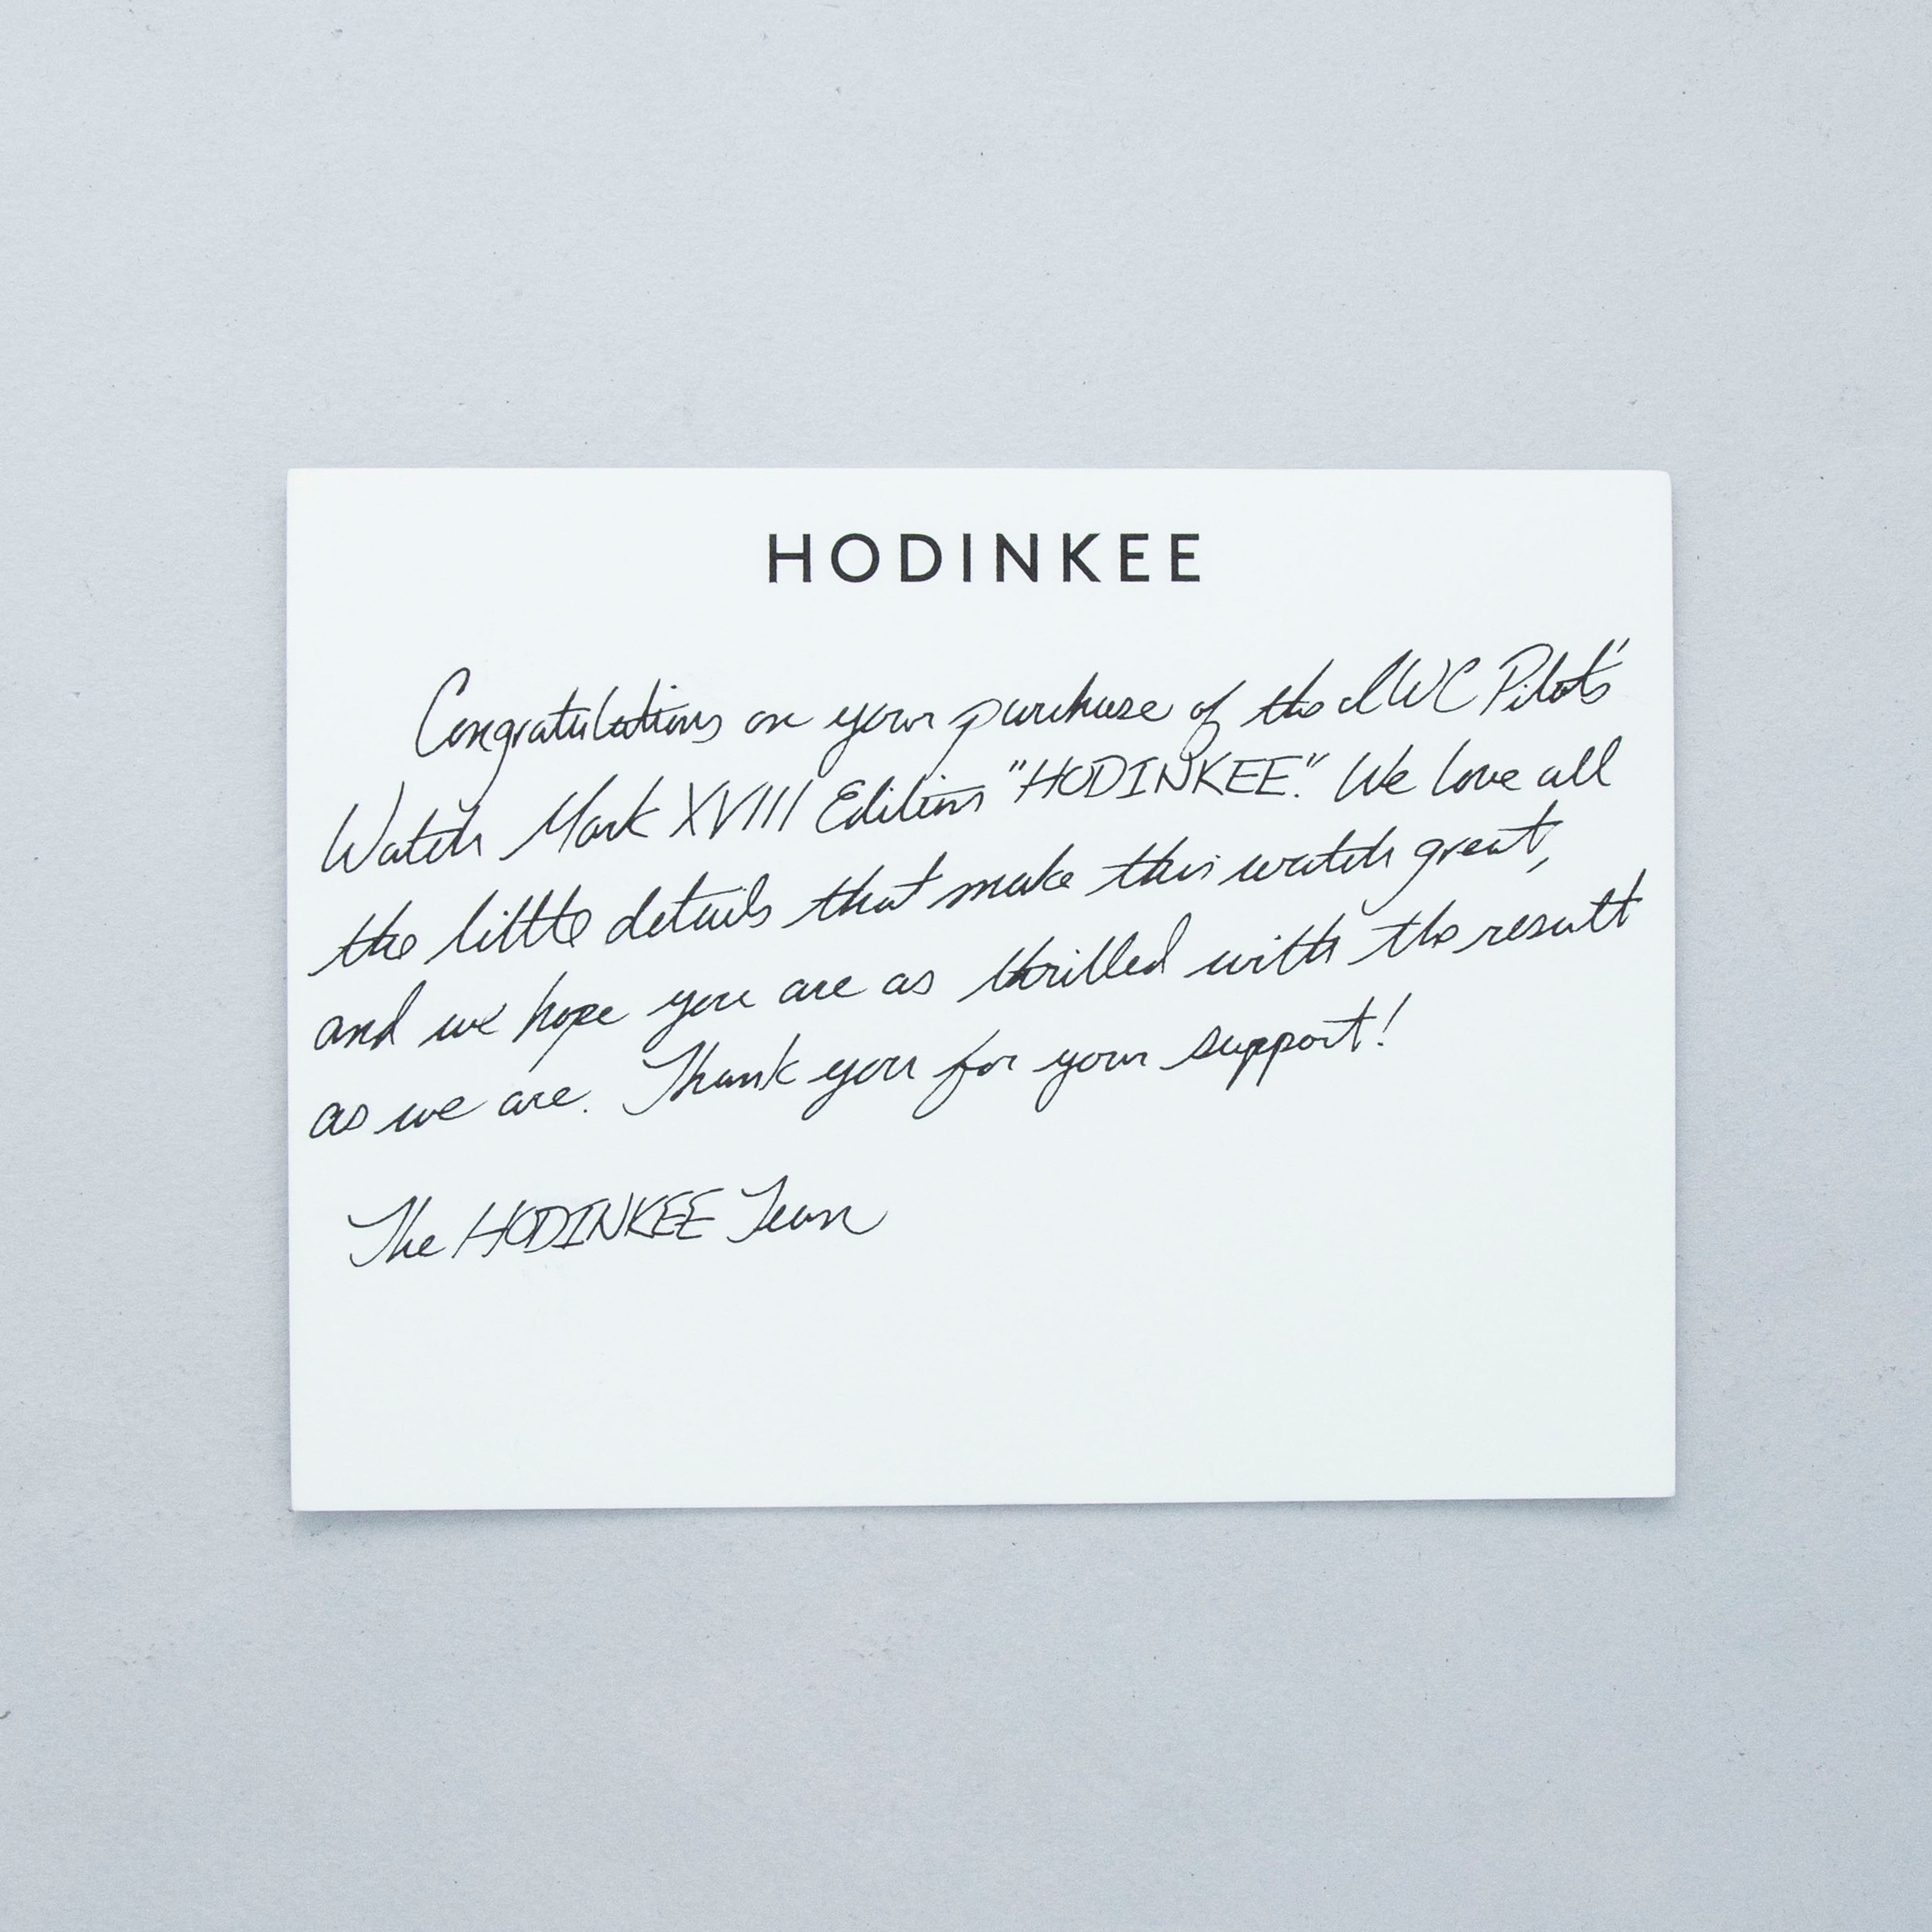 HODINKEE
Congratulations on your purchase of the IWC Pilot's
Watch Mark XVIII Edition "HODINKEE." We love all
the little details that make this watch great,
and we hope you are as thrilled with the result
as we are. Thank you for your support!
The HODINKEE Team